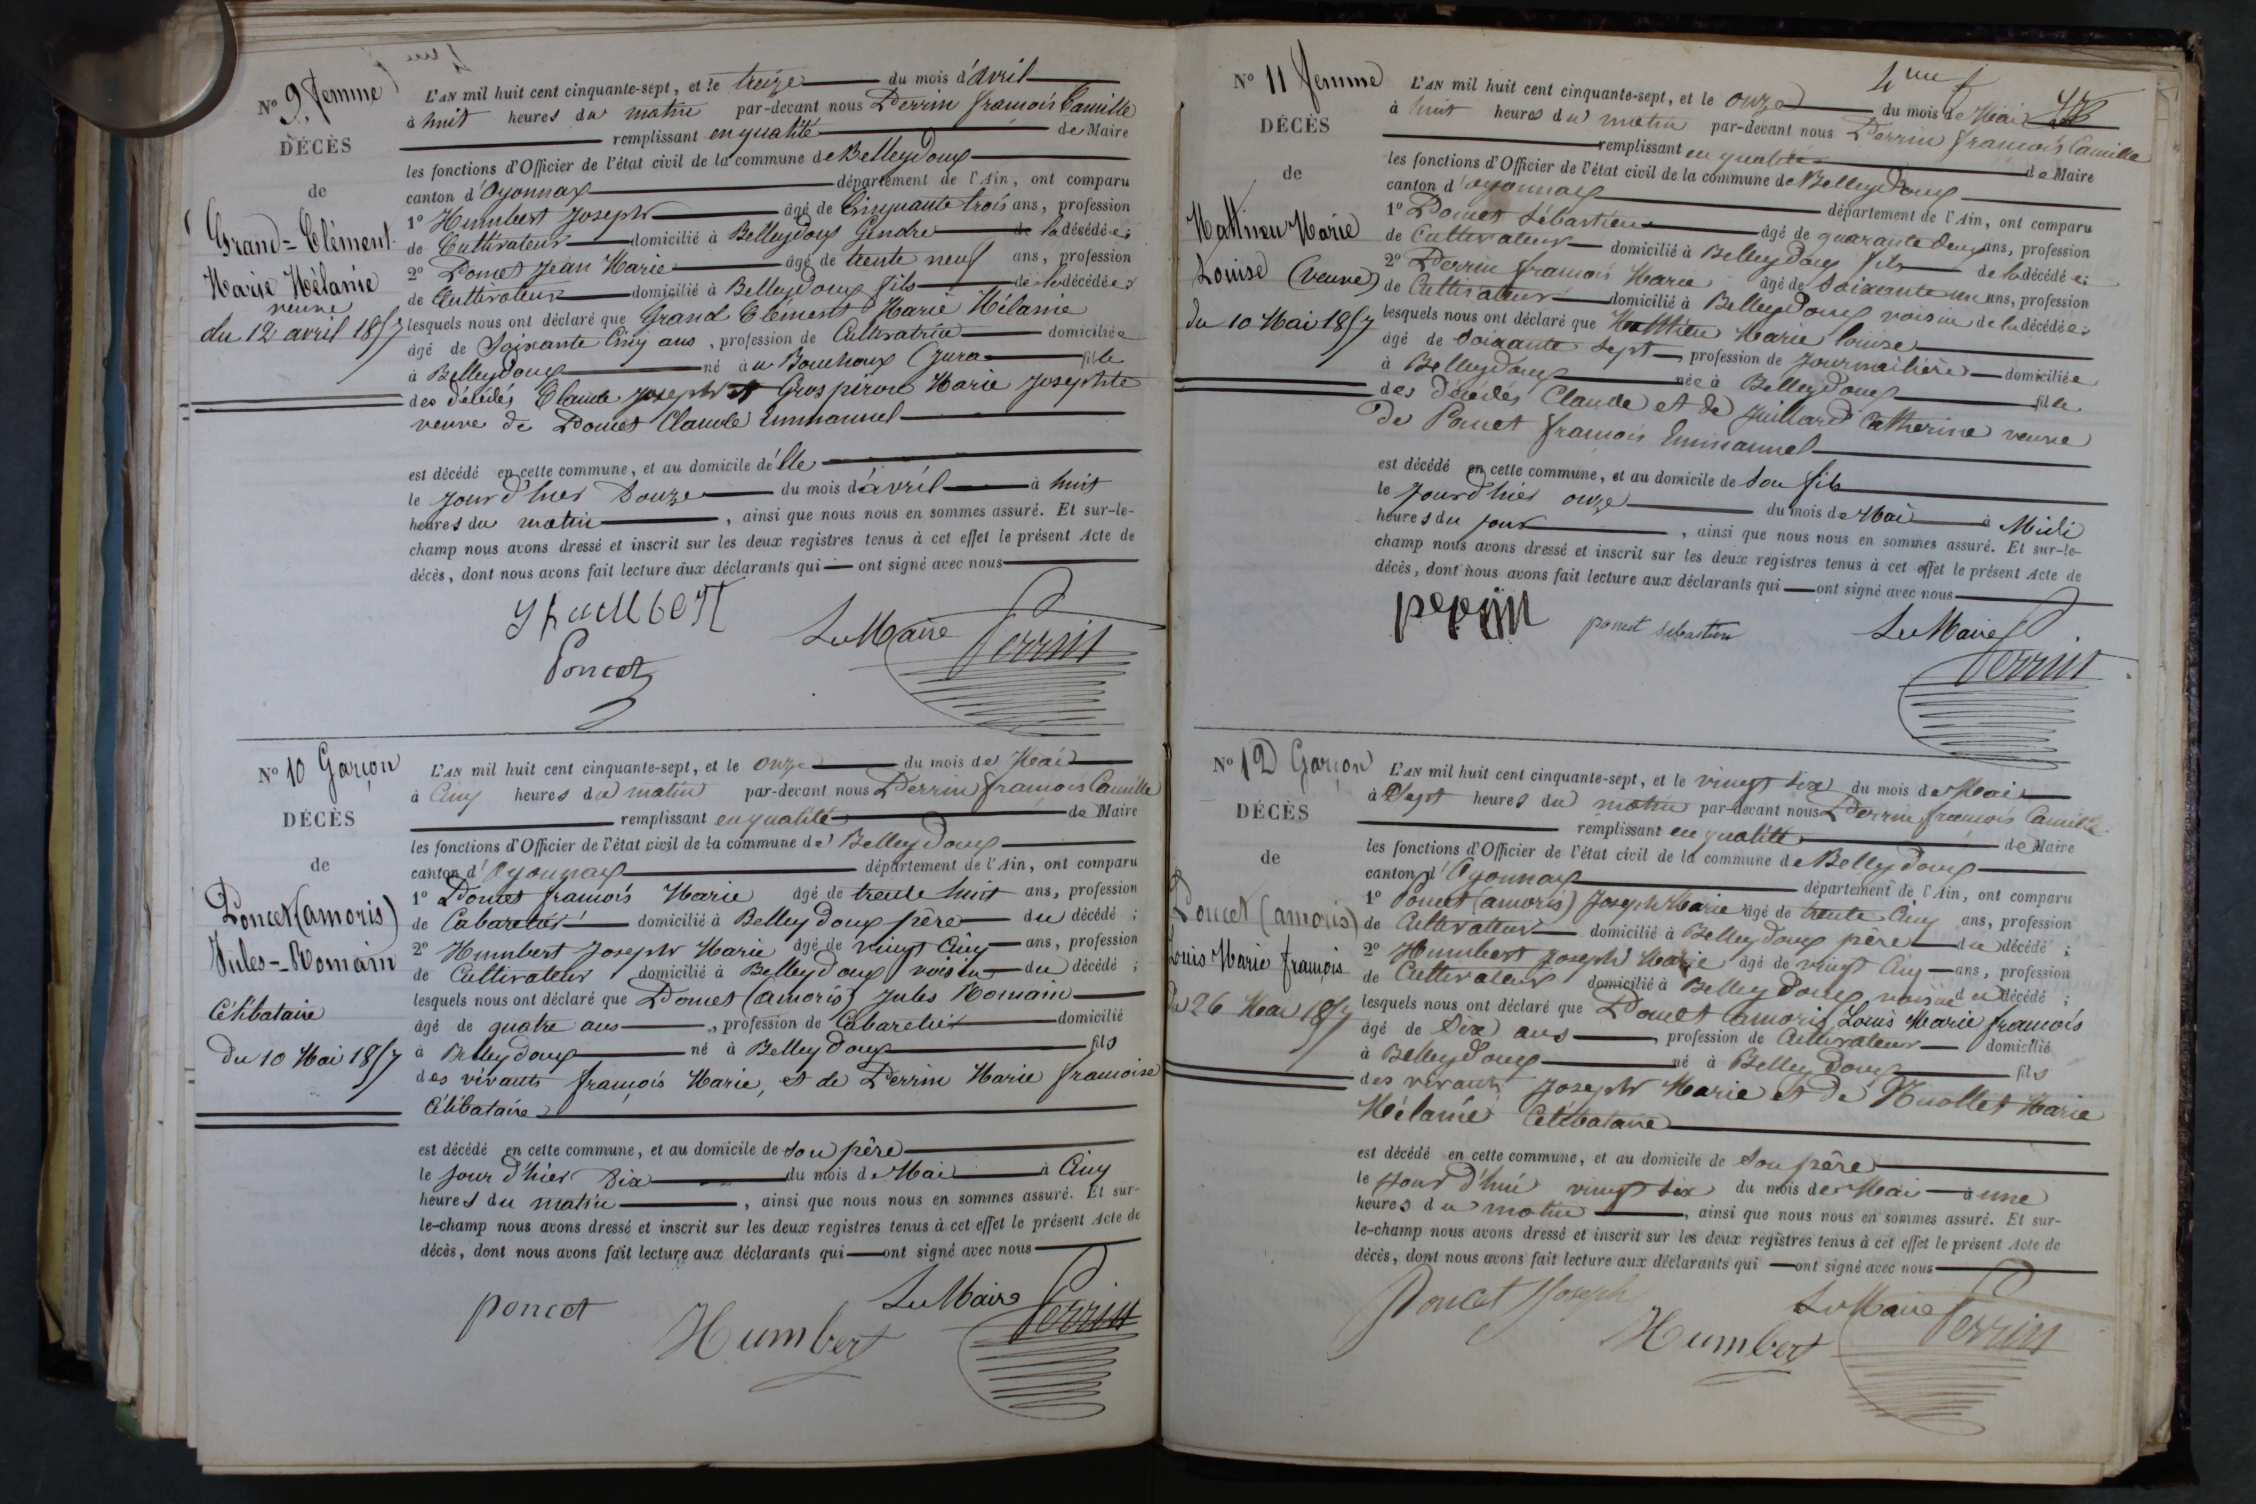 Nº 9. femme
DÉCÈS
de
Grand=Clément
Marie Mélanie
veuve
du 12 avril 1857
L'AN mil huit cent cinquante-sept, et le treize du mois d'avril
à huit heures du matin par-devant nous Perrin françois Camille
remplissant en qualité de Maire
les fonctions d'Officier de l'état civil de la commune de Belleydoux
canton d'Oyonnax département de l'Ain, ont comparu
1º Humbert Joseph âgé de Cinquante trois ans, profession
de Cultivateur domicilié à Belleydoux Gendre de la décédée;
2º Poncet Jean Marie âgé de trente neuf ans, profession
de Cultivateur domicilié à Belleydoux fils de la décédée;
lesquels nous ont déclaré que Grand Clément Marie Mélanie
âgé de Soixante Cinq ans, profession de Cultivatrice domiciliée
à Belleydoux né au Bouchoux (Jura fille
des décédés Claude Joseph et Grospéron Marie Josephte
veuve de Poncet Claude Emmanuel
est décédé en cette commune, et au domicile d'elle
le jour d'hier Douze du mois d'avril à huit
heures du matin, ainsi que nous nous en sommes assuré. Et sur-le-
champ nous avons dressé et inscrit sur les deux registres tenus à cet effet le présent Acte de
décès, dont nous avons fait lecture aux déclarants qui ont signé avec nous
Poncet
Le Maire Perrin
Nº 10 Garçon
DÉCÈS
de
Poncet (amoris)
Jules-Romain
Célibataire
du 10 Mai 1857
L'AN mil huit cent cinquante-sept, et le onze du mois de Mai
à Cinq heures du matin par-devant nous Perrin françois Camille
remplissant en qualité de Maire
les fonctions d'Officier de l'état civil de la commune de Belleydoux
canton d'Oyonnax département de l'Ain, ont comparu
1º Poncet françois Marie âgé de trente huit ans, profession
de Cabaretier domicilié à Belleydoux père du décédé;
2º Humbert Joseph Marie âgé de vingt Cinq ans, profession
de Cultivateur domicilié à Belleydoux voisin du décédé;
lesquels nous ont déclaré que Poncet (amoris) Jules Romain
âgé de quatre ans, profession de Cabaretier domicilié
à Belleydoux né à Belleydoux fils
des vivants françois Marie, et de Perrin Marie françoise
Célibataire
est décédé en cette commune, et au domicile de son père
le jour d'hier Dix du mois de Mai à Cinq
heures du matin, ainsi que nous nous en sommes assuré. Et sur-
le-champ nous avons dressé et inscrit sur les deux registres tenus à cet effet le présent Acte de
décès, dont nous avons fait lecture aux déclarants qui ont signé avec nous
poncet Humbert Le Maire Perrin
Nº 11 femme
DÉCÈS
de
Matthieu Marie
Louise (veuve)
du 10 Mai 1857
L'AN mil huit cent cinquante-sept, et le onze du mois de Mai
à huit heures du matin par-devant nous Perrin françois Camille
remplissant en qualité de Maire
les fonctions d'Officier de l'état civil de la commune de Belleydoux
canton d'oyonnax département de l'Ain, ont comparu
1º Poncet Sébastien âgé de quarante deux ans, profession
de Cultivateur domicilié à Belleydoux fils de la décédée;
2º Perrin françois Marie âgé de Soixante un ans, profession
de Cultivateur domicilié à Belleydoux voisin de la décédée;
lesquels nous ont déclaré que Matthieu Marie louise
âgé de Soixante sept, profession de Journalière domiciliée
à Belleydoux née à Belleydoux fille
des Décédés Claude et de Juillard Catherine veuve
De Poncet françois Emmanuel
est décédé en cette commune, et au domicile de Son fils
le Jour d'hier onze du mois de Mai à Midi
heures du jour, ainsi que nous nous en sommes assuré. Et sur-le-
champ nous avons dressé et inscrit sur les deux registres tenus à cet effet le présent Acte de
décès, dont nous avons fait lecture aux déclarants qui ont signé avec nous
perrin poncet sebastien Le Maire Perrin
Nº 12 Garçon
DÉCÈS
de
Poncet (amoris)
Louis Marie françois
du 26 Mai 1857
L'AN mil huit cent cinquante-sept, et le vingt six du mois de Mai
à Sept heures du matin par-devant nous Perrin françois Camille
remplissant en qualité de Maire
les fonctions d'Officier de l'état civil de la commune de Belleydoux
canton d'Oyonnax département de l'Ain, ont comparu
1º Poncet (amoris) Joseph Marie âgé de trente Cinq ans, profession
de Cultivateur domicilié à Belleydoux père du décédé;
2º Humbert Joseph Marie âgé de vingt Cinq ans, profession
de Cultivateur domicilié à Belleydoux voisin du décédé;
lesquels nous ont déclaré que Poncet amoris Louis Marie françois
âgé de Six ans, profession de Cultivateur domicilié
à Belleydoux né à Belleydoux fils
des vivants Joseph Marie et de Marie
Mélanie Célibataire
est décédé en cette commune, et au domicile de Son père
le Jour d'hui vingt six du mois de Mai à une
heures du matin, ainsi que nous nous en sommes assuré. Et sur-
le-champ nous avons dressé et inscrit sur les deux registres tenus à cet effet le présent Acte de
décès, dont nous avons fait lecture aux déclarants qui ont signé avec nous
Poncet Joseph Humbert Le Maire Perrin